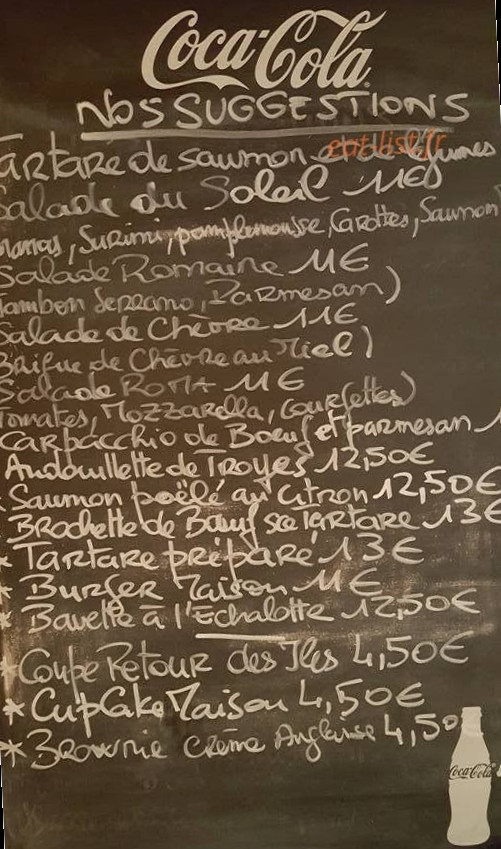 Coca-Cola
NOS SUGGESTIONS
Tartare de saumon et de légumes
eat-list.fr
Salade du Soleil 11€
Ananas, Surimi, pamplemousse, Carottes, Saumon
Salade Romaine 11€
Jambon Serrano, Parmesan)
Salade de Chèvre 11€
Brique de Chèvre au Miel)
Salade ROMA 11€
Tomates, Mozzarella, Courgettes)
Carpacchio de Bœuf et parmesan 1
Andouillette de Troyes 12,50€
Saumon poêlé au Citron 12,50€
Brochette de Bœuf sce Tartare 13€
* Tartare préparé 13€
* Burger Maison 11€
* Bavette à l'Echalotte 12,50€
* Coupe Retour des Iles 4,50€
* CupCake Maison 4,50€
* Brownie Crème Anglaise 4,50
Coca-Cola